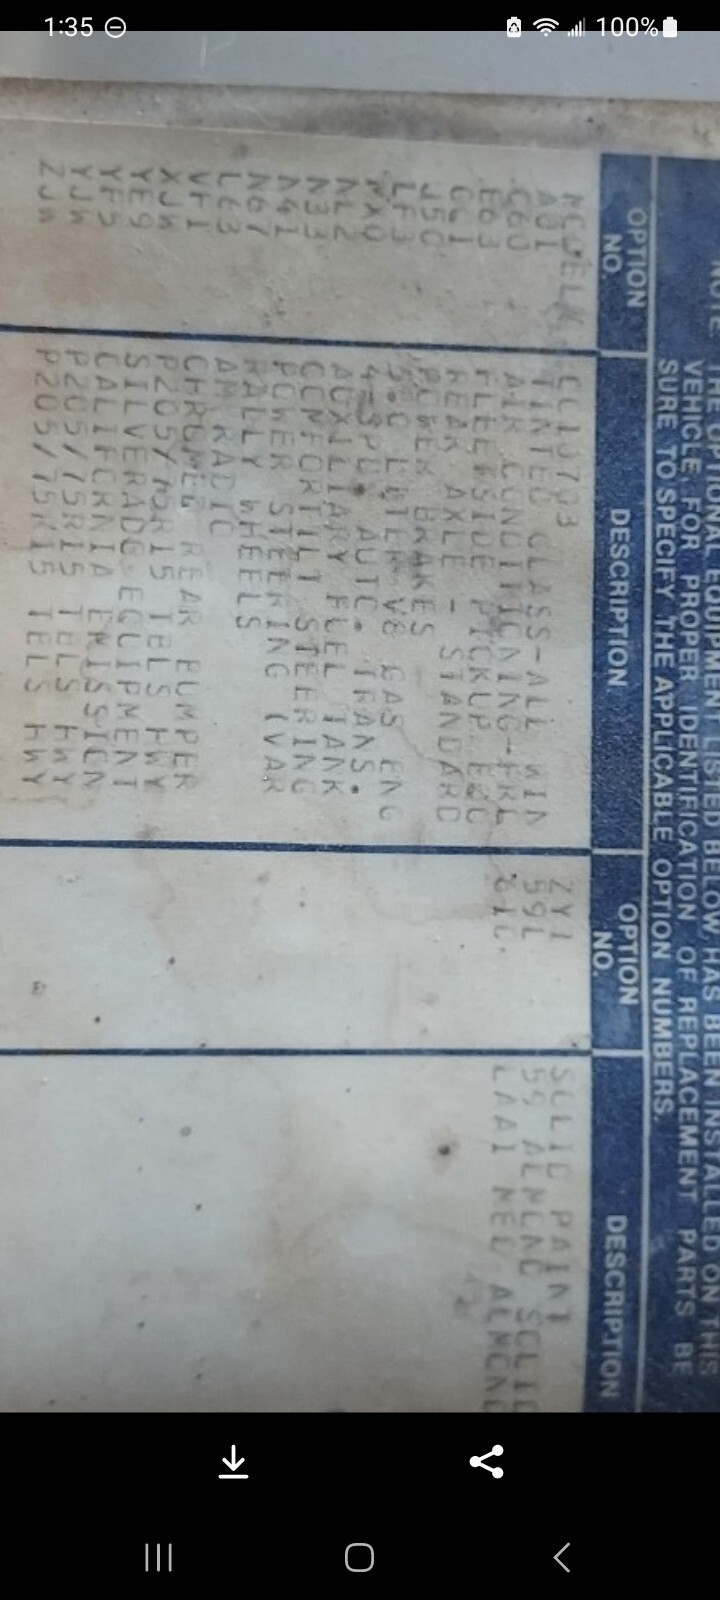 1:35
100%
NOTE THE OPTIONAL EQUIPMENT LISTED BELOW HAS BEEN INSTALLED ON THIS
VEHICLE. FOR PROPER IDENTIFICATION OF REPLACEMENT PARTS BE
SURE TO SPECIFY THE APPLICABLE OPTION NUMBERS.
OPTION NO. DESCRIPTION OPTION NO. DESCRIPTION
CC10703 ZY1 SOLID PAINT
A01 TINTED GLASS-ALL WIN 59L 59 ALMOND SOLID
C60 AIR CONDITIONING-FRL ALMOND
E63 FLEETSIDE PICKUP
REAR AXLE - STANDARD
J50 POWER BRAKES
LF3 5.0 LITER V8 GAS ENG
MX0 4-SPD. AUTO. TRANS.
NL2 AUXILIARY FUEL TANK
N33 COMFORTILT STEERING
N41 POWER STEERING (VAR
N67 RALLY WHEELS
AM RADIO
VF1 CHROMED REAR BUMPER
XJW P205/75R15 TBLS HWY
YE9 SILVERADO EQUIPMENT
YF5 CALIFORNIA EMISSION
YJW P205/75R15 TBLS HWY
ZJW P205/75R15 TBLS HWY